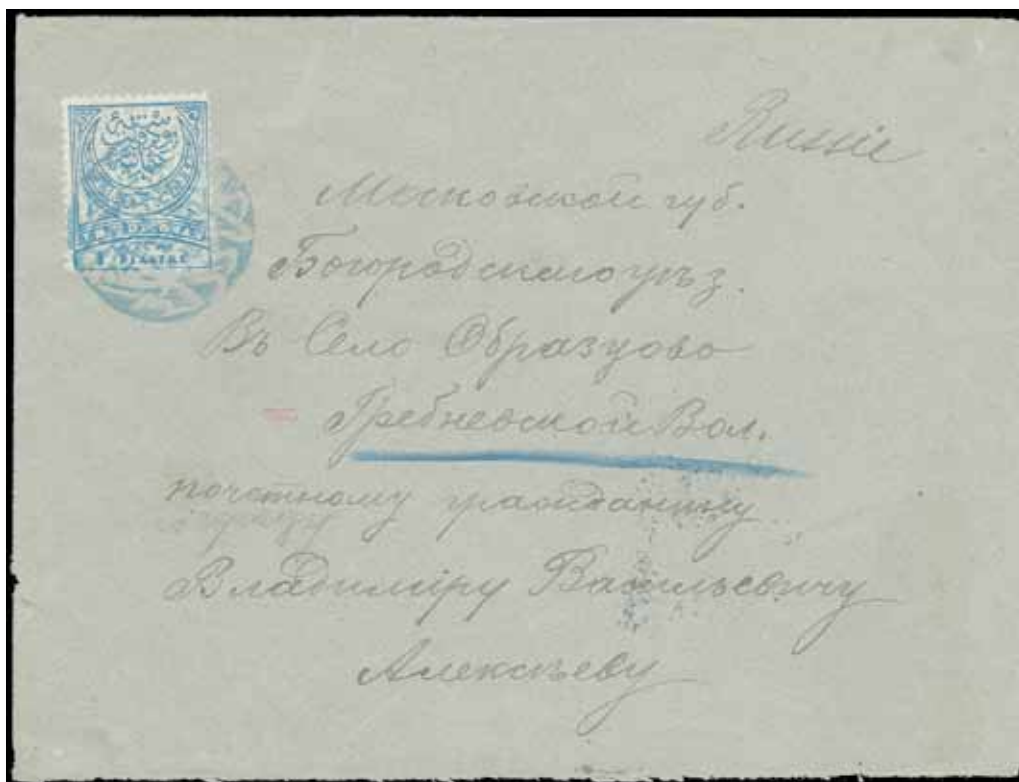 Russie
Московской губ.
Богородскаго уѣз.
Въ Село Образцово
Гребневской Вол.
почетному гражданину
Владиміру Васильевичу
Алексѣеву
1 PIASTRE